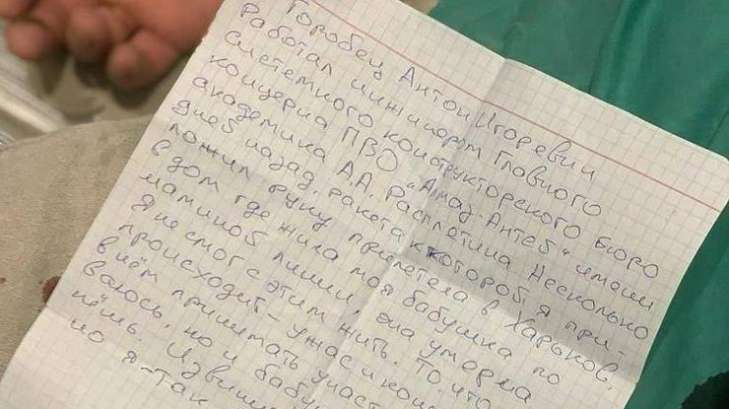 Горобец Антон Игоревич
работал инжинером Главного
системного конструкторского бюро
концерна ПВО "Алмаз-Антей" имени
академика А.А. Расплетина. Несколько
дней назад, ракета к которой я при-
ложил руку прилетела в Харьков,
в дом где жила моя бабушка по
маминой линии, она умерла
Я не смог с этим жить. То что
происходит – ужас и кош
в нём принимать участ
ваюсь, но и бабу
нёшь. Извини
но я – так